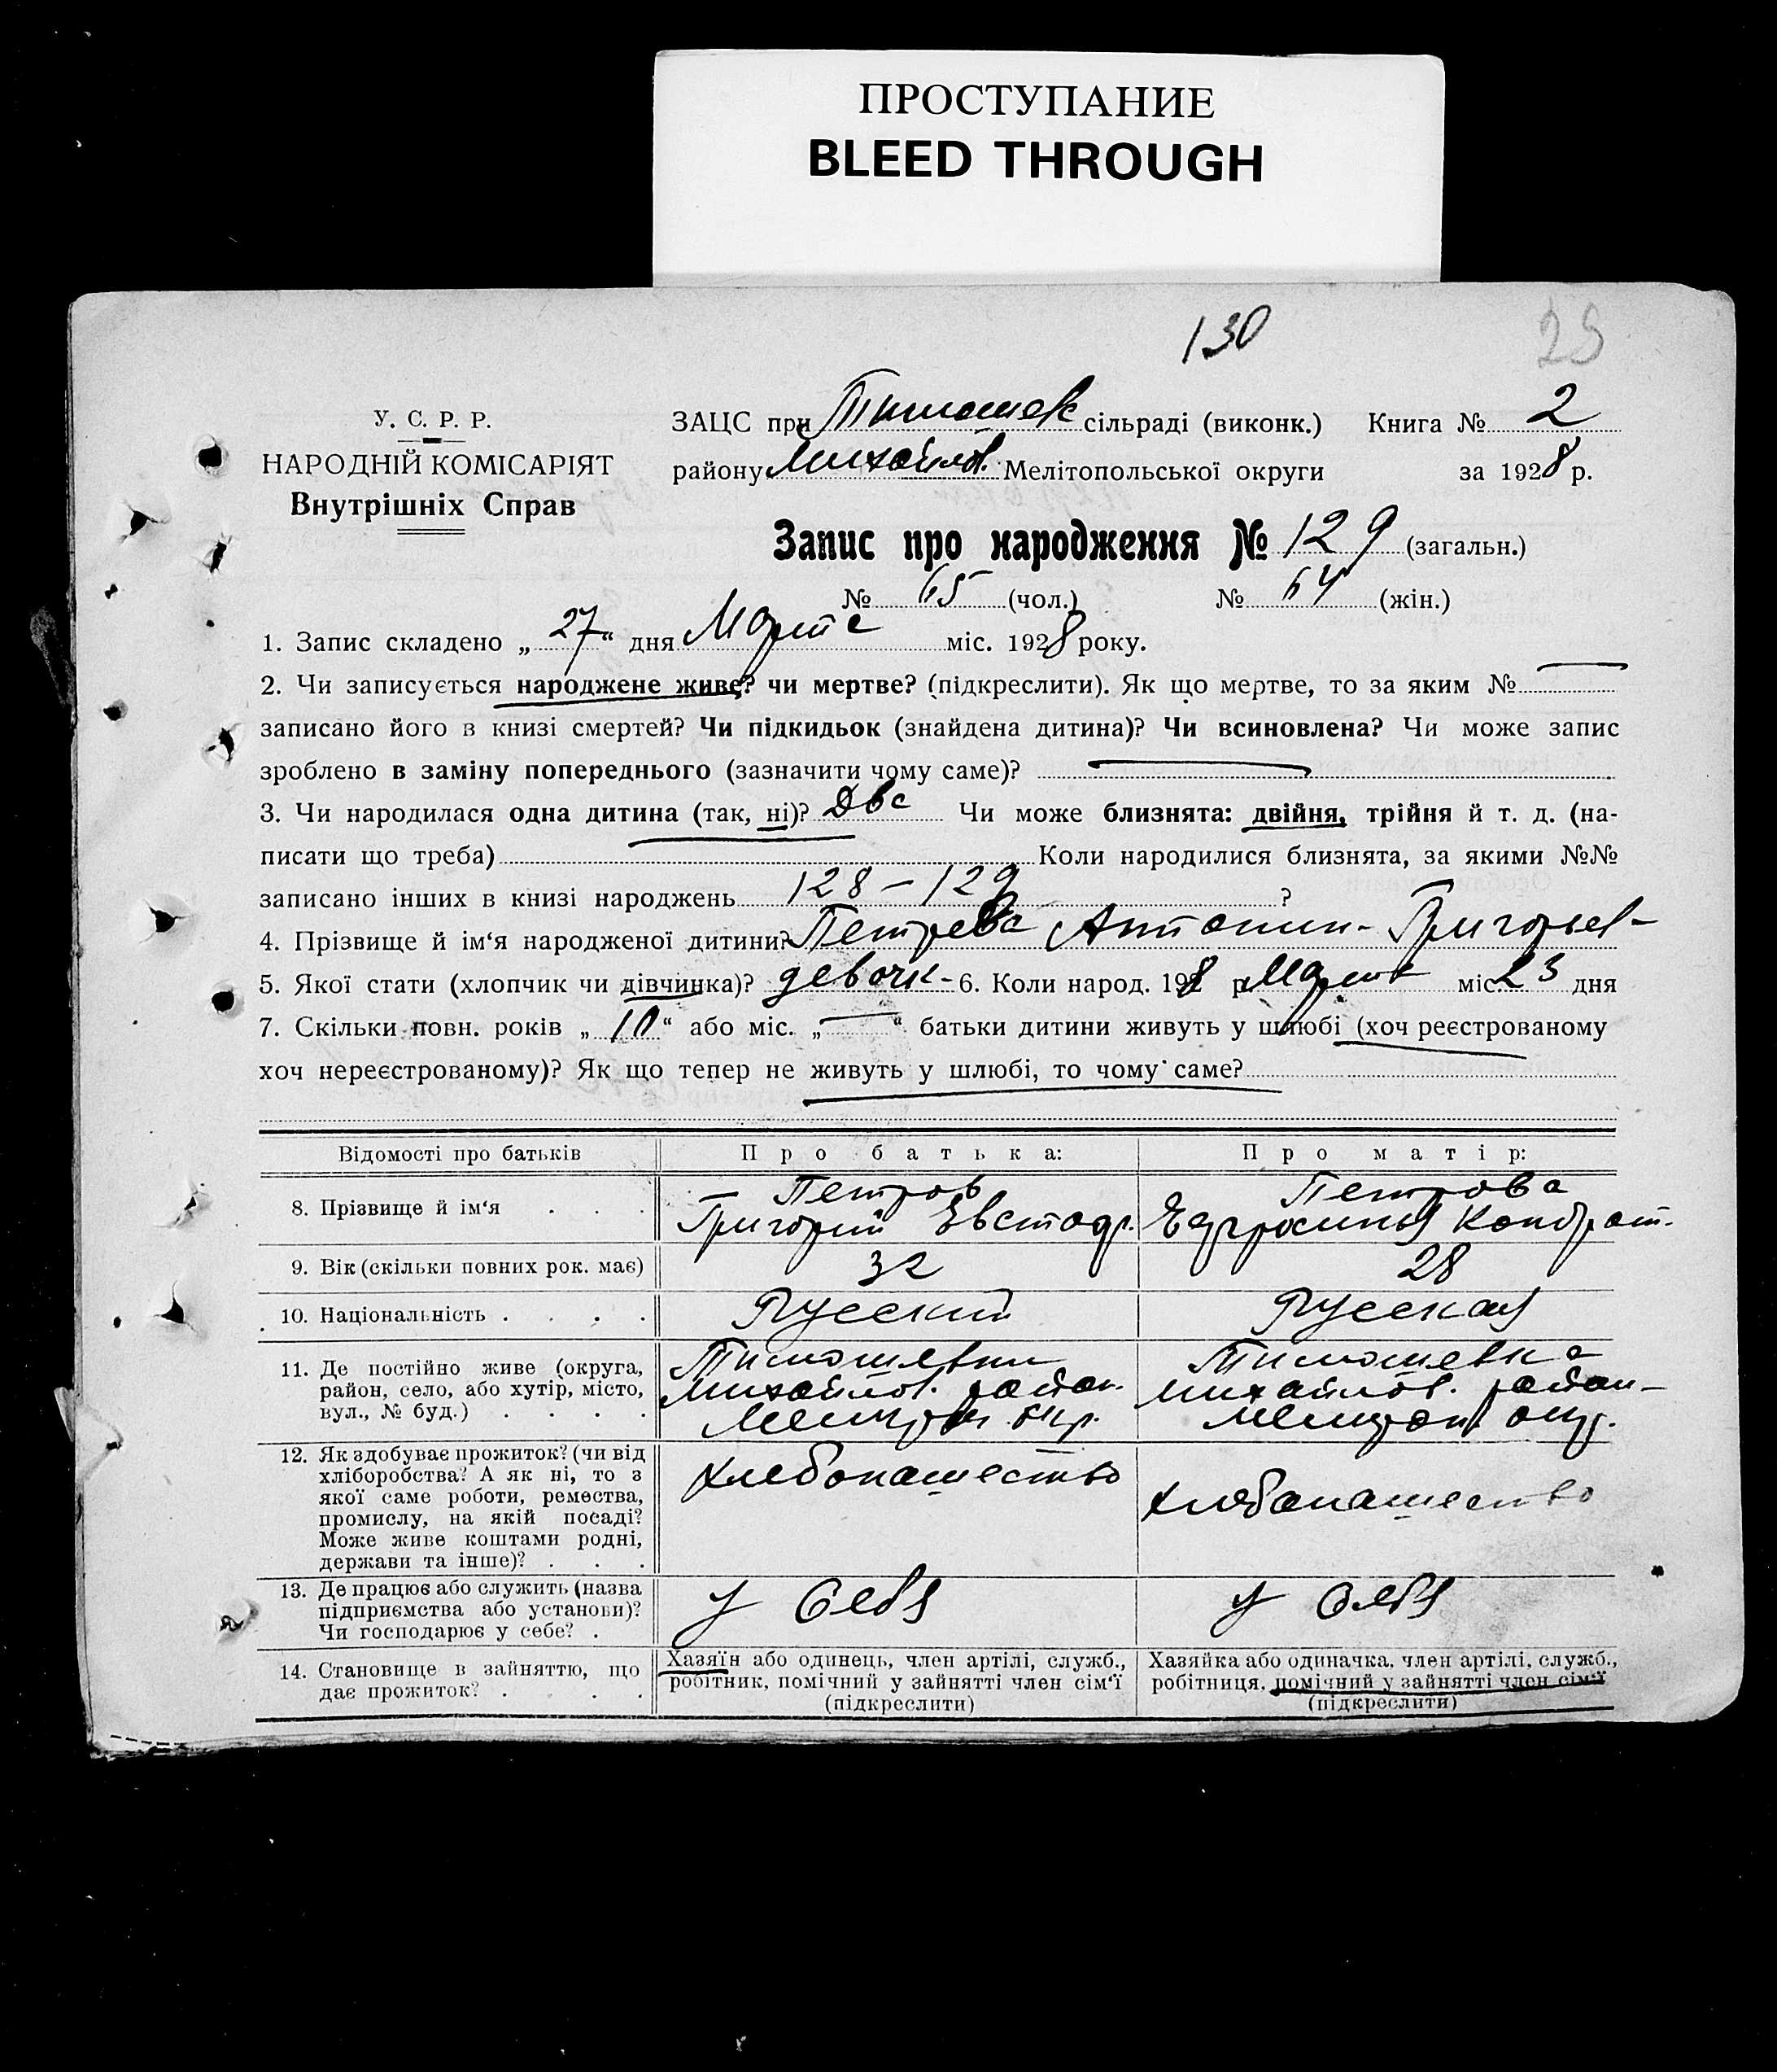 ПРОСТУПАНИЕ
BLEED THROUGH
130
У. С. Р. Р.
НАРОДНІЙ КОМІСАРІЯТ
Внутрішніх Справ
ЗАЦС при Тимошев сільраді (виконк.) Книга № 2
району Михайлов. Мелітопольської округи за 1928 р.
Запис про народження № 129 (загальн.)
№ 65 (чол.) № 64 (жін.)
1. Запис складено „27“ дня Марта міс. 1928 року.
2. Чи записується народжене живе? чи мертве? (підкреслити). Як що мертве, то за яким №
записано його в книзі смертей? Чи підкидьок (знайдена дитина)? Чи всиновлена? Чи може запис
зроблено в заміну попереднього (зазначити чому саме)?
3. Чи народилася одна дитина (так, ні)? Два Чи може близнята: двійня, трійня й т. д. (на-
писати що треба) Коли народилися близнята, за якими №№
записано інших в книзі народжень 128 – 129 ?
4. Прізвище й ім‘я народженої дитини? Петрова Антонин- Григорьев-
5. Якої стати (хлопчик чи дівчинка)? девочк- 6. Коли народ. 1928 р. Марта міс. 23 дня
7. Скільки повн. років „10“ або міс. „—“ батьки дитини живуть у шлюбі (хоч реєстрованому
хоч нереєстрованому)? Як що тепер не живуть у шлюбі, то чому саме?
Відомості про батьків Про батька: Про матір:
8. Прізвище й ім‘я . . . Петров Григорий Евстаф. Петрова Ефросиния Кондрат.
9. Вік (скільки повних рок. має) 32 28
10. Національність . . . . Русский Русская
11. Де постійно живе (округа,
район, село, або хутір, місто,
вул., № буд.) . . . .
Тимошевки
Михайлов. район.
Мелитоп. окр.
Тимошевка
Михайлов. район-
Мелитоп. окр.
12. Як здобуває прожиток? (чи від
хліборобства? А як ні, то з
якої саме роботи, ремества,
промислу, на якій посаді?
Може живе коштами родні,
держави та інше)? . . .
Хлебопашество
Хлебопашество
13. Де працює або служить (назва
підприємства або установи)?
Чи господарює у себе? .
у Себя
у Себя
14. Становище в зайняттю, що
дає прожиток? . . . .
Хазяїн або одинець, член артілі, служб.,
робітник, помічний у зайнятті член сім‘ї
(підкреслити)
Хазяйка або одиначка, член артілі, служб.,
робітниця, помічний у зайнятті член сім‘ї
(підкреслити)